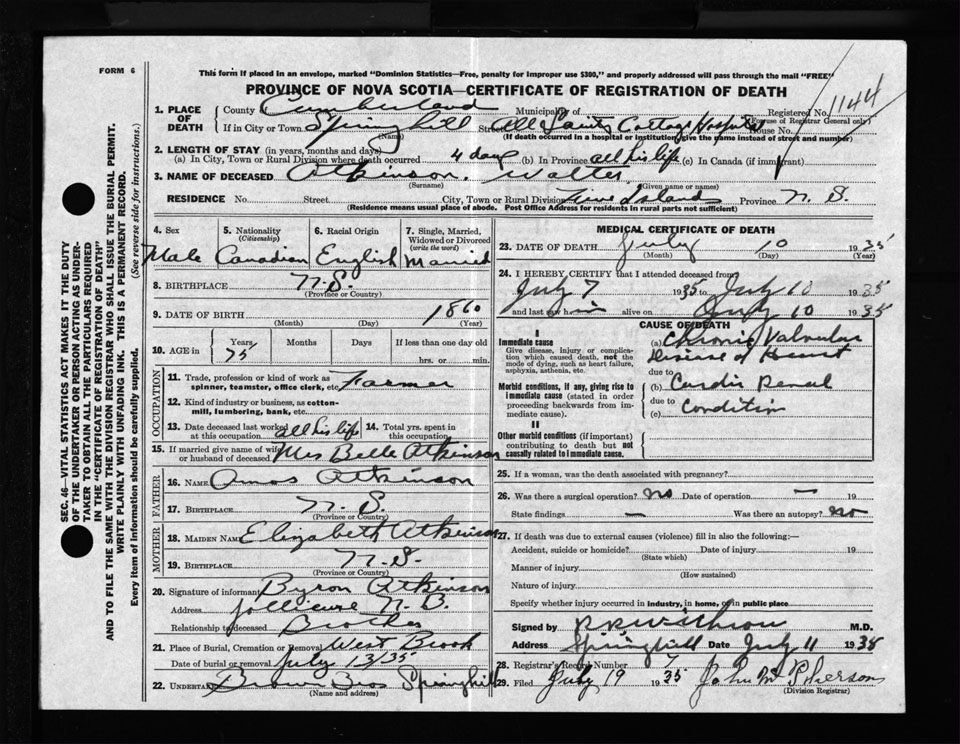 FORM 6
This form if placed in an envelope, marked "Dominion Statistics—Free, penalty for improper use $300," and properly addressed will pass through the mail "FREE"
PROVINCE OF NOVA SCOTIA—CERTIFICATE OF REGISTRATION OF DEATH
1. PLACE OF DEATH
County Cumberland Municipality of Registered No. 1144
(For use of Registrar General only)
If in City or Town Springhill Street All Saints Cottage Hospital House No.
(Name) (If death occurred in a hospital or institution, give the name instead of street and number)
2. LENGTH OF STAY (in years, months and days)
(a) In City, Town or Rural Division where death occurred 4 days (b) In Province all his life (c) In Canada (if immigrant)
3. NAME OF DECEASED Atkinson, Walter
(Surname) (Given name or names)
RESIDENCE No. Street City, Town or Rural Division Island Province N. S.
(Residence means usual place of abode. Post Office Address for residents in rural parts not sufficient)
4. Sex Male
5. Nationality (Citizenship) Canadian
6. Racial Origin English
7. Single, Married, Widowed or Divorced (write the word) Married
8. BIRTHPLACE N.S.
(Province or Country)
9. DATE OF BIRTH 1860
(Month) (Day) (Year)
10. AGE in Years 75 Months Days If less than one day old
hrs. or min.
OCCUPATION
11. Trade, profession or kind of work as spinner, teamster, office clerk, etc. Farmer
12. Kind of industry or business, as cotton-mill, lumbering, bank, etc.
13. Date deceased last worked at this occupation all his life 14. Total yrs. spent in this occupation
15. If married give name of wife or husband of deceased Mrs Belle Atkinson
FATHER
16. NAME Amos Atkinson
17. BIRTHPLACE N. S.
(Province or Country)
MOTHER
18. MAIDEN NAME Elizabeth Atkinson
19. BIRTHPLACE N. S.
(Province or Country)
20. Signature of informant Byron Atkinson
Address Jollicure N. B.
Relationship to deceased Brother
21. Place of Burial, Cremation or Removal West Brook
Date of burial or removal July 13/35
22. UNDERTAKER Brown Bros Springhill
(Name and address)
MEDICAL CERTIFICATE OF DEATH
23. DATE OF DEATH July 10 1935
(Month) (Day) (Year)
24. I HEREBY CERTIFY that I attended deceased from
July 7 1935 to July 10 1935
and last saw him alive on July 10 1935
CAUSE OF DEATH
I
Immediate cause
Give disease, injury or complication which caused death, not the mode of dying, such as heart failure, asphyxia, asthenia, etc.
(a) Chronic Valvular
Disease of Heart
due to
Morbid conditions, if any, giving rise to immediate cause (stated in order proceeding backwards from immediate cause).
(b) Cardio Renal
due to
(c) Condition
II
Other morbid conditions (if important) contributing to death but not causally related to immediate cause.
25. If a woman, was the death associated with pregnancy?
26. Was there a surgical operation? no Date of operation — 19
State findings — Was there an autopsy? no
27. If death was due to external causes (violence) fill in also the following:—
Accident, suicide or homicide? Date of injury 19
(State which)
Manner of injury
(How sustained)
Nature of injury
Specify whether injury occurred in industry, in home, or in public place
Signed by M.D.
Address Springhill Date July 11 1935
28. Registrar's Record Number 7
29. Filed July 19 1935 John McPherson
(Division Registrar)
SEC. 46—VITAL STATISTICS ACT MAKES IT THE DUTY
OF THE UNDERTAKER OR PERSON ACTING AS UNDER-
TAKER TO OBTAIN ALL THE PARTICULARS REQUIRED
IN THE "CERTIFICATE OF REGISTRATION OF DEATH"
AND TO FILE THE SAME WITH THE DIVISION REGISTRAR WHO SHALL ISSUE THE BURIAL PERMIT.
WRITE PLAINLY WITH UNFADING INK. THIS IS A PERMANENT RECORD.
Every item of information should be carefully supplied. (See reverse side for instructions.)